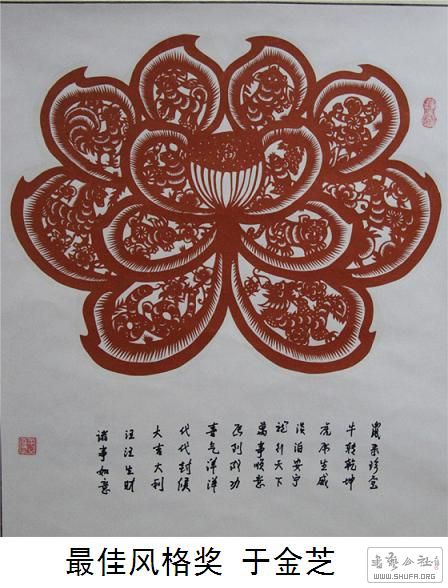 鼠 珍宝
牛转乾坤
虎虎生威
淡泊安宁
龙行天下
萬事顺意
马到成功
喜气洋洋
代代封侯
大吉大利
汪汪生财
诸事如意
最佳风格奖 于金芝
书艺公社
WWW.SHUFA.ORG